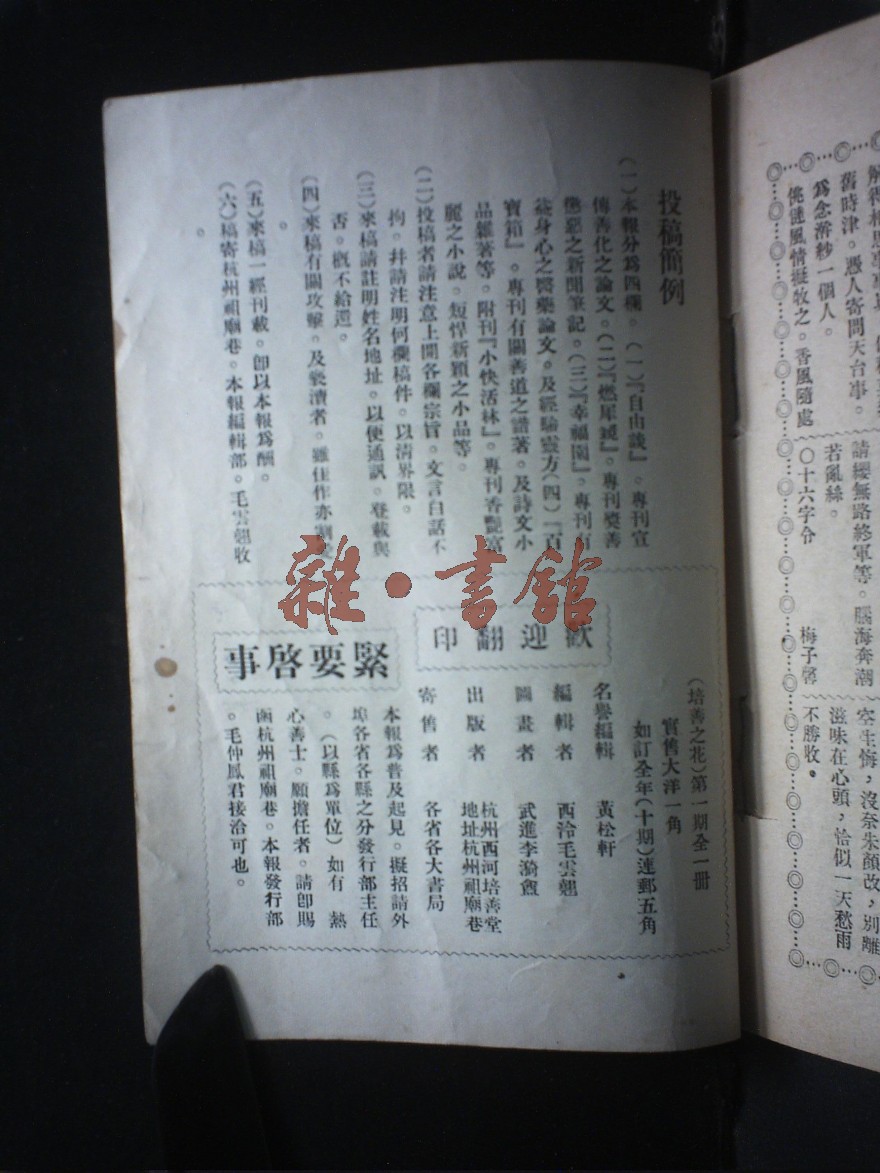 解得相思事
舊時津。憑人寄問天台事。
為念澣紗一個人。
佻㒓風情擬牧之。香風隨處
請纓無路終軍等。腦海奔潮
若亂絲。
〇十六字令
梅子馨
空生悔，沒奈朱顏改，別離
滋味在心頭，恰似一天愁雨
不勝收。
投稿簡例
(一)本報分為四欄。(一)『自由談』。專刊宣
傳善化之論文。(二)『燃犀鏡』。專刊獎善
懲惡之新聞筆記。(三)『幸福園』。專刊有
益身心之醫藥論文。及經驗靈方(四)『百
寶箱』。專刊有關善道之譜著。及詩文小
品雜著等。附刊『小快活林』。專刊香艷富
麗之小說。短悍新穎之小品等。
(二)投稿者請注意上開各欄宗旨。文言白話不
拘。幷請注明何欄稿件。以清界限。
(三)來稿請註明姓名地址。以便通訊。登載與
否。槪不給還。
(四)來稿有關攻擊。及褻瀆者。雖佳作亦割愛
。
(五)來稿一經刊載。卽以本報爲酬。
(六)稿寄杭州祖廟巷。本報編輯部。毛雲翹收
。
(培善之花)第一期全一册
實售大洋一角
如訂全年(十期)連郵五角
名譽編輯　黃松軒
編輯者　西泠毛雲翹
圖畫者　武進李漪盦
出版者　杭州西河培善堂
地址杭州祖廟巷
寄售者　各省各大書局
歡迎翻印
緊要啓事
本報爲普及起見。擬招請外
埠各省各縣之分發行部主任
。(以縣爲單位)如有　熱
心善士。願擔任者。請卽賜
函杭州祖廟巷。本報發行部
。毛仲鳳君接洽可也。
雜·書館